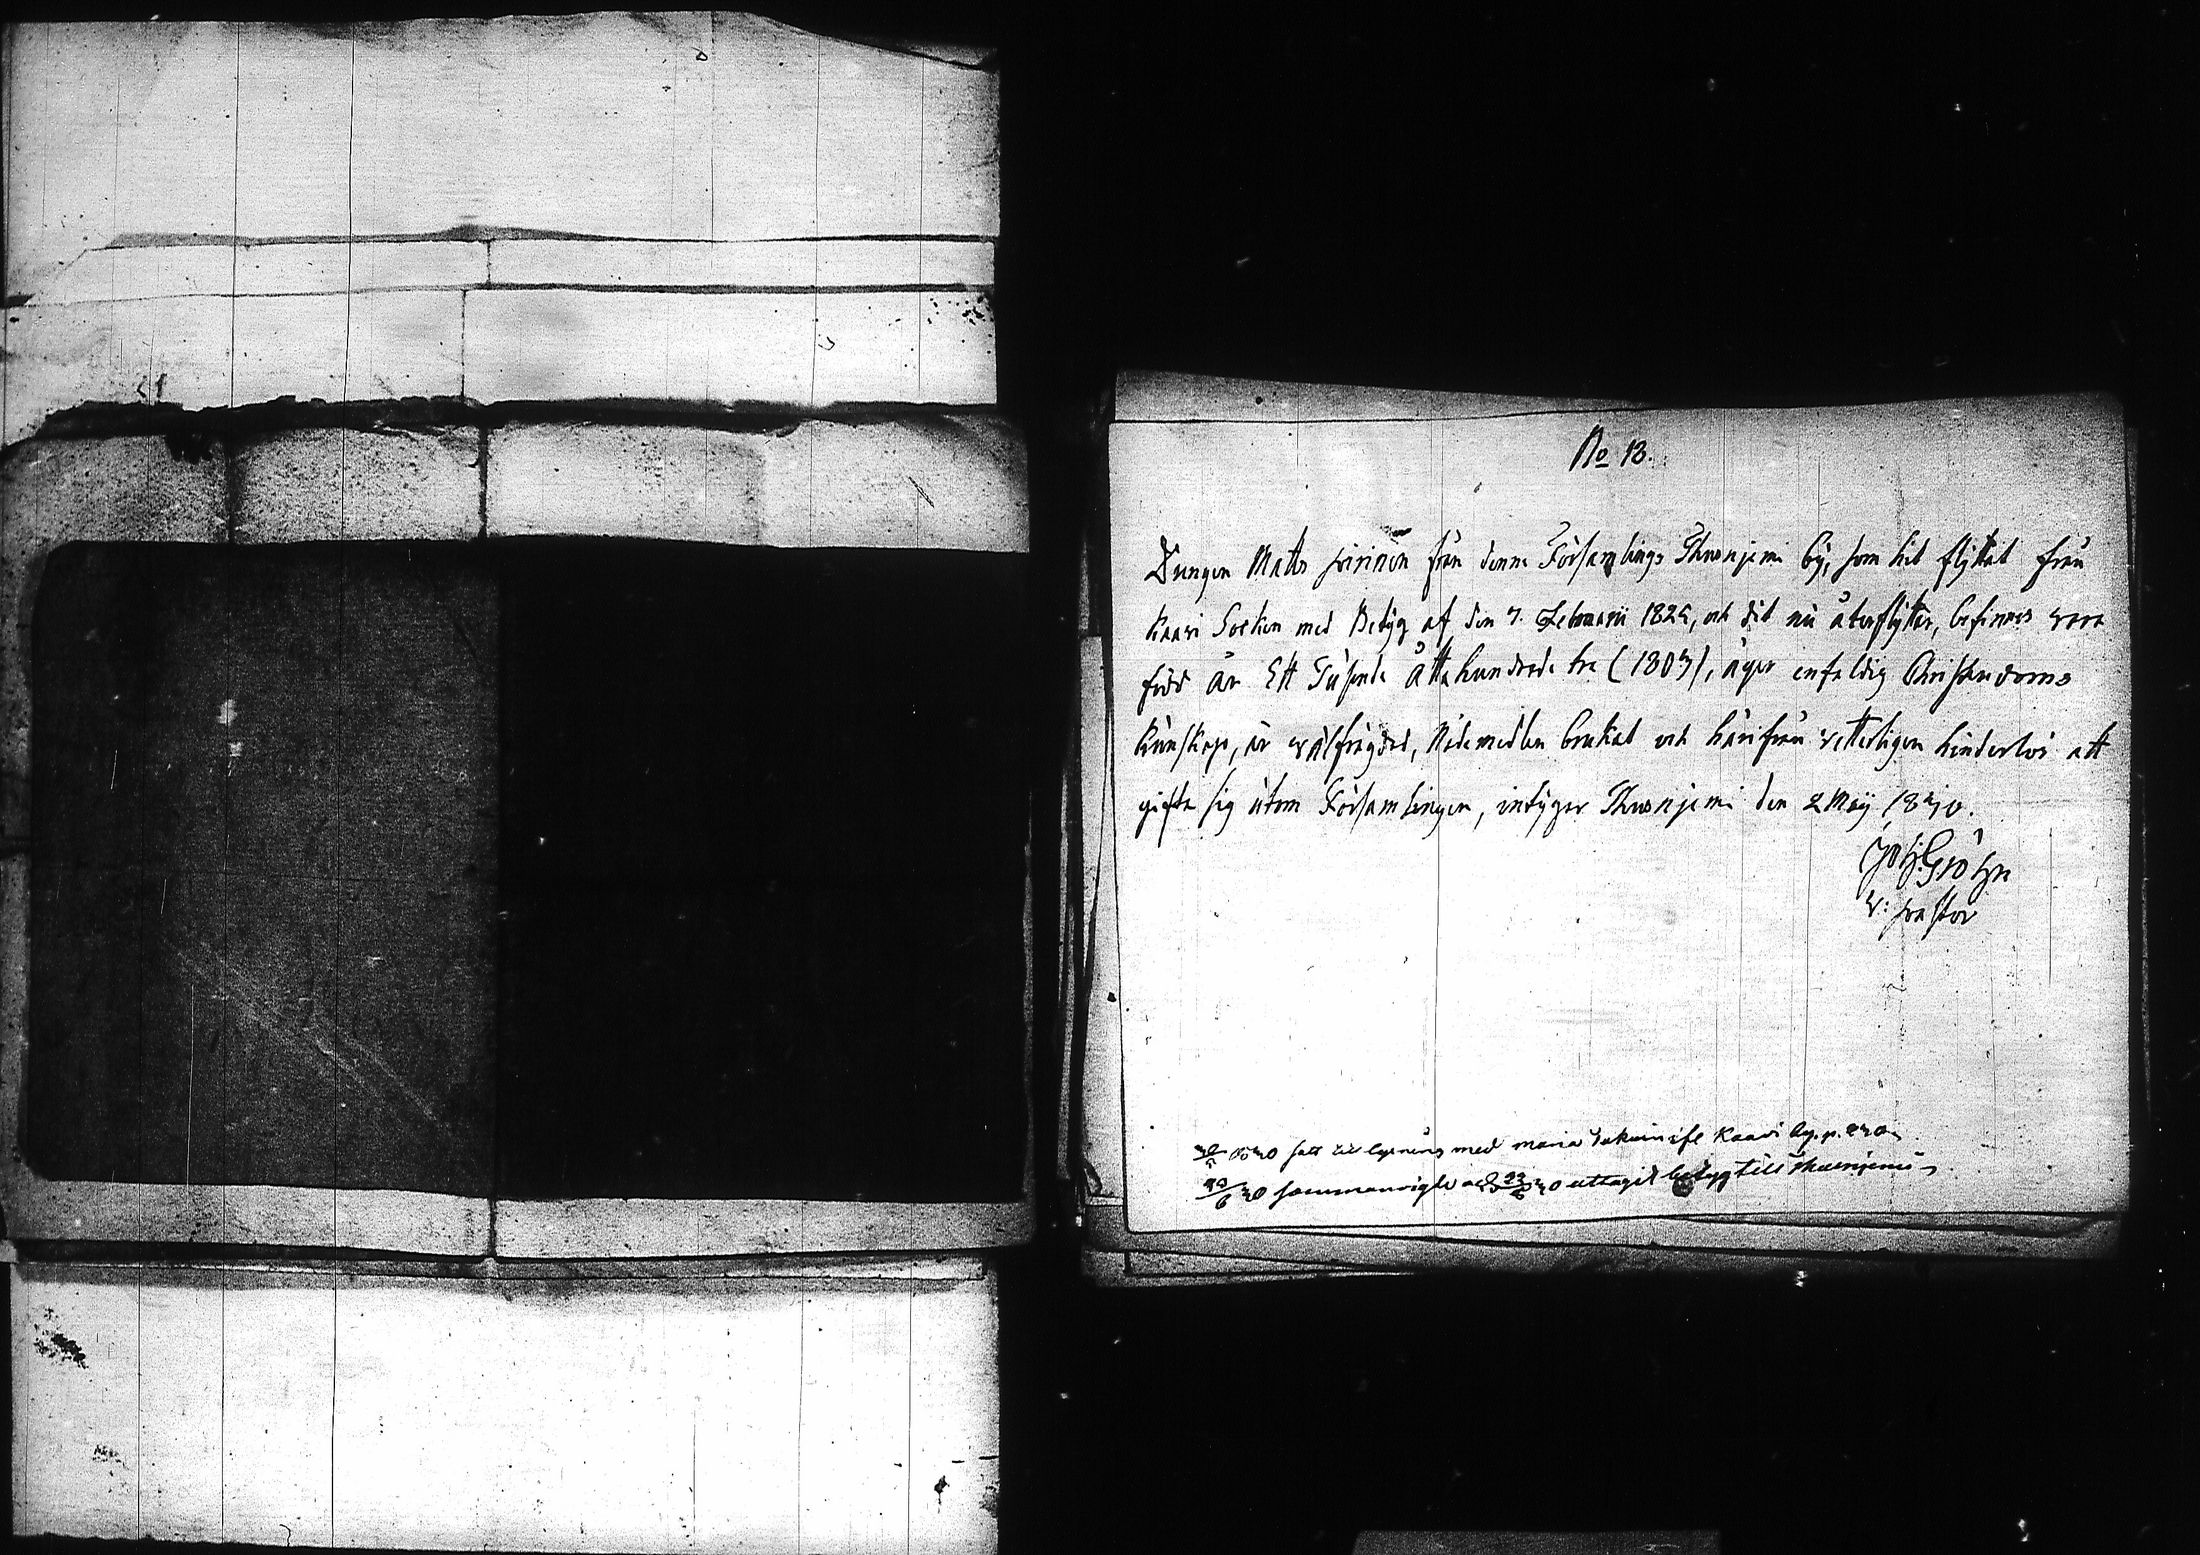 No 13.
Drengen Matts Pirinen från denne Församlings Thusnjemi by, som hit flyttat från
Kaavi Socken med Betyg af den 7. Februarii 1825, och dit nu återflyttar, befinnes vara
född År Ett Tusende Åtta hundrade tre (1803), äger enfaldig Christendoms
kunskap, är wälfrägdad, Nådemedlen brukat och härifrån wetterligen hinderlös att
gifta sig utom Församlingen, intygar Thusnjemi den 2 Maij 1830.
Joh. Gröhn
v: pastor
30 satt till lysning med Maria Kaavi by. p.
30 sammanvigde och 30 uttagit betyg till Thusnjemi